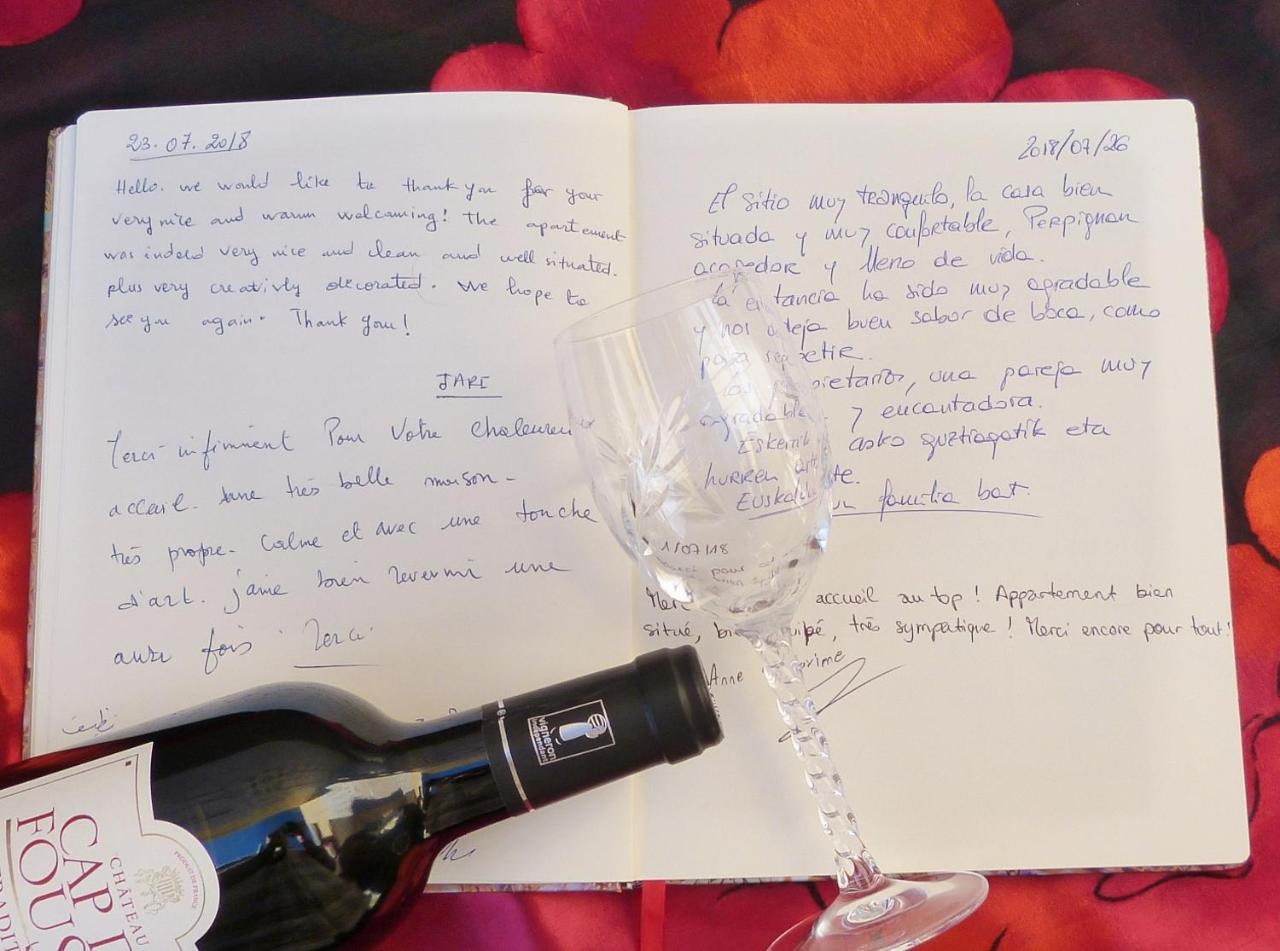 23.07.2018
Hello. we would like to thank you for your
very nice and warm welcoming! the apartement
was indeed very nice and clean and well situated.
plus very creativly decorated. We hope to
see you again. Thank you!
JARI
Merci infiniment Pour Votre chaleureux
acceil. une très belle maison -
très propre. Calme et avec une touche
d'art. j'aime bien revenir une
fois Merci
2018/07/26
El sitio muy tranquilo, la casa bien
situada y muy confortable, Perpignan
acogedor y lleno de vida.
la estancia ha sido muy agradable
y nos deja buen sabor de boca, como
para repetir.
los propietarios, una pareja muy
agradable y encantadora.
Eskerrik asko guztiagatik eta
hurren arte.
familia bat.
1/07/18
pour
Merci accueil au top! Appartement bien
situé, bien équipé, très sympatique! Merci encore pour tout!
Anne
vigneron
indépendant
CHÂTEAU
CAP
FOUS
PRODUCT OF FRANCE